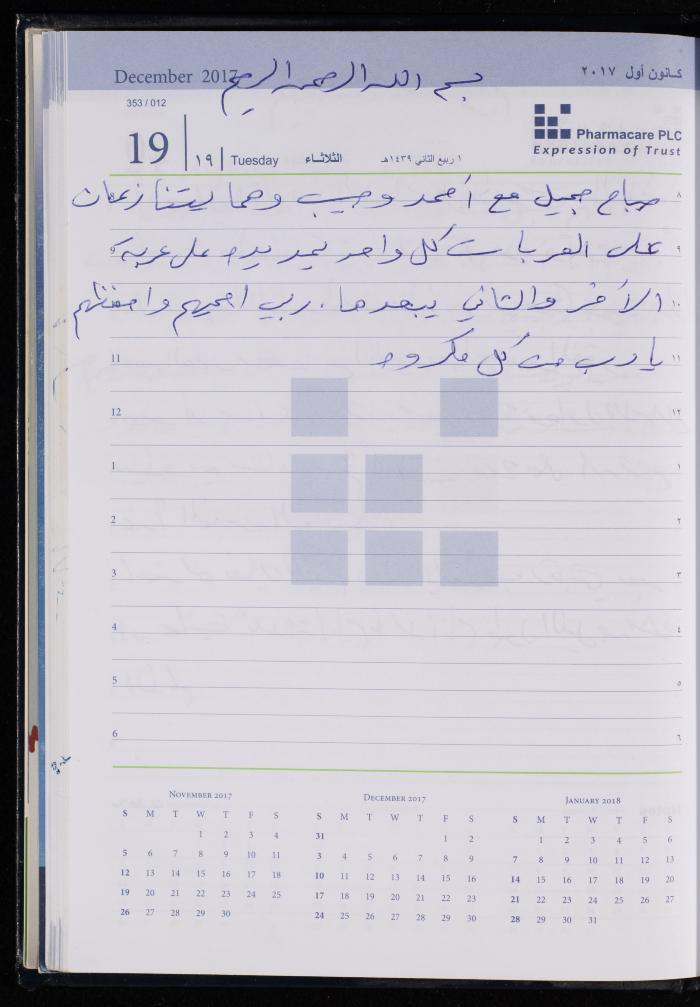 December 2017 كانون أول ٢٠١٧
بسم الله الرحمن الرحيم
353 / 012
19 ١٩ Tuesday الثلاثاء ١ ربيع الثاني ١٤٣٩هـ
Pharmacare PLC
Expression of Trust
٨ صباح جميل مع أحمد وحبيب وهما يتنازعان
٩ على العربات كل واحد يمد يده على عربة
١٠ الآخر والثاني يبعدها. ربي احميهم واحفظهم
11 يا رب من كل مكروه ١١
12 ١٢
1 ١
2 ٢
3 ٣
4 ٤
5 ٥
6 ٦
NOVEMBER 2017
S M T W T F S
1 2 3 4
5 6 7 8 9 10 11
12 13 14 15 16 17 18
19 20 21 22 23 24 25
26 27 28 29 30
DECEMBER 2017
S M T W T F S
31 1 2
3 4 5 6 7 8 9
10 11 12 13 14 15 16
17 18 19 20 21 22 23
24 25 26 27 28 29 30
JANUARY 2018
S M T W T F S
1 2 3 4 5 6
7 8 9 10 11 12 13
14 15 16 17 18 19 20
21 22 23 24 25 26 27
28 29 30 31